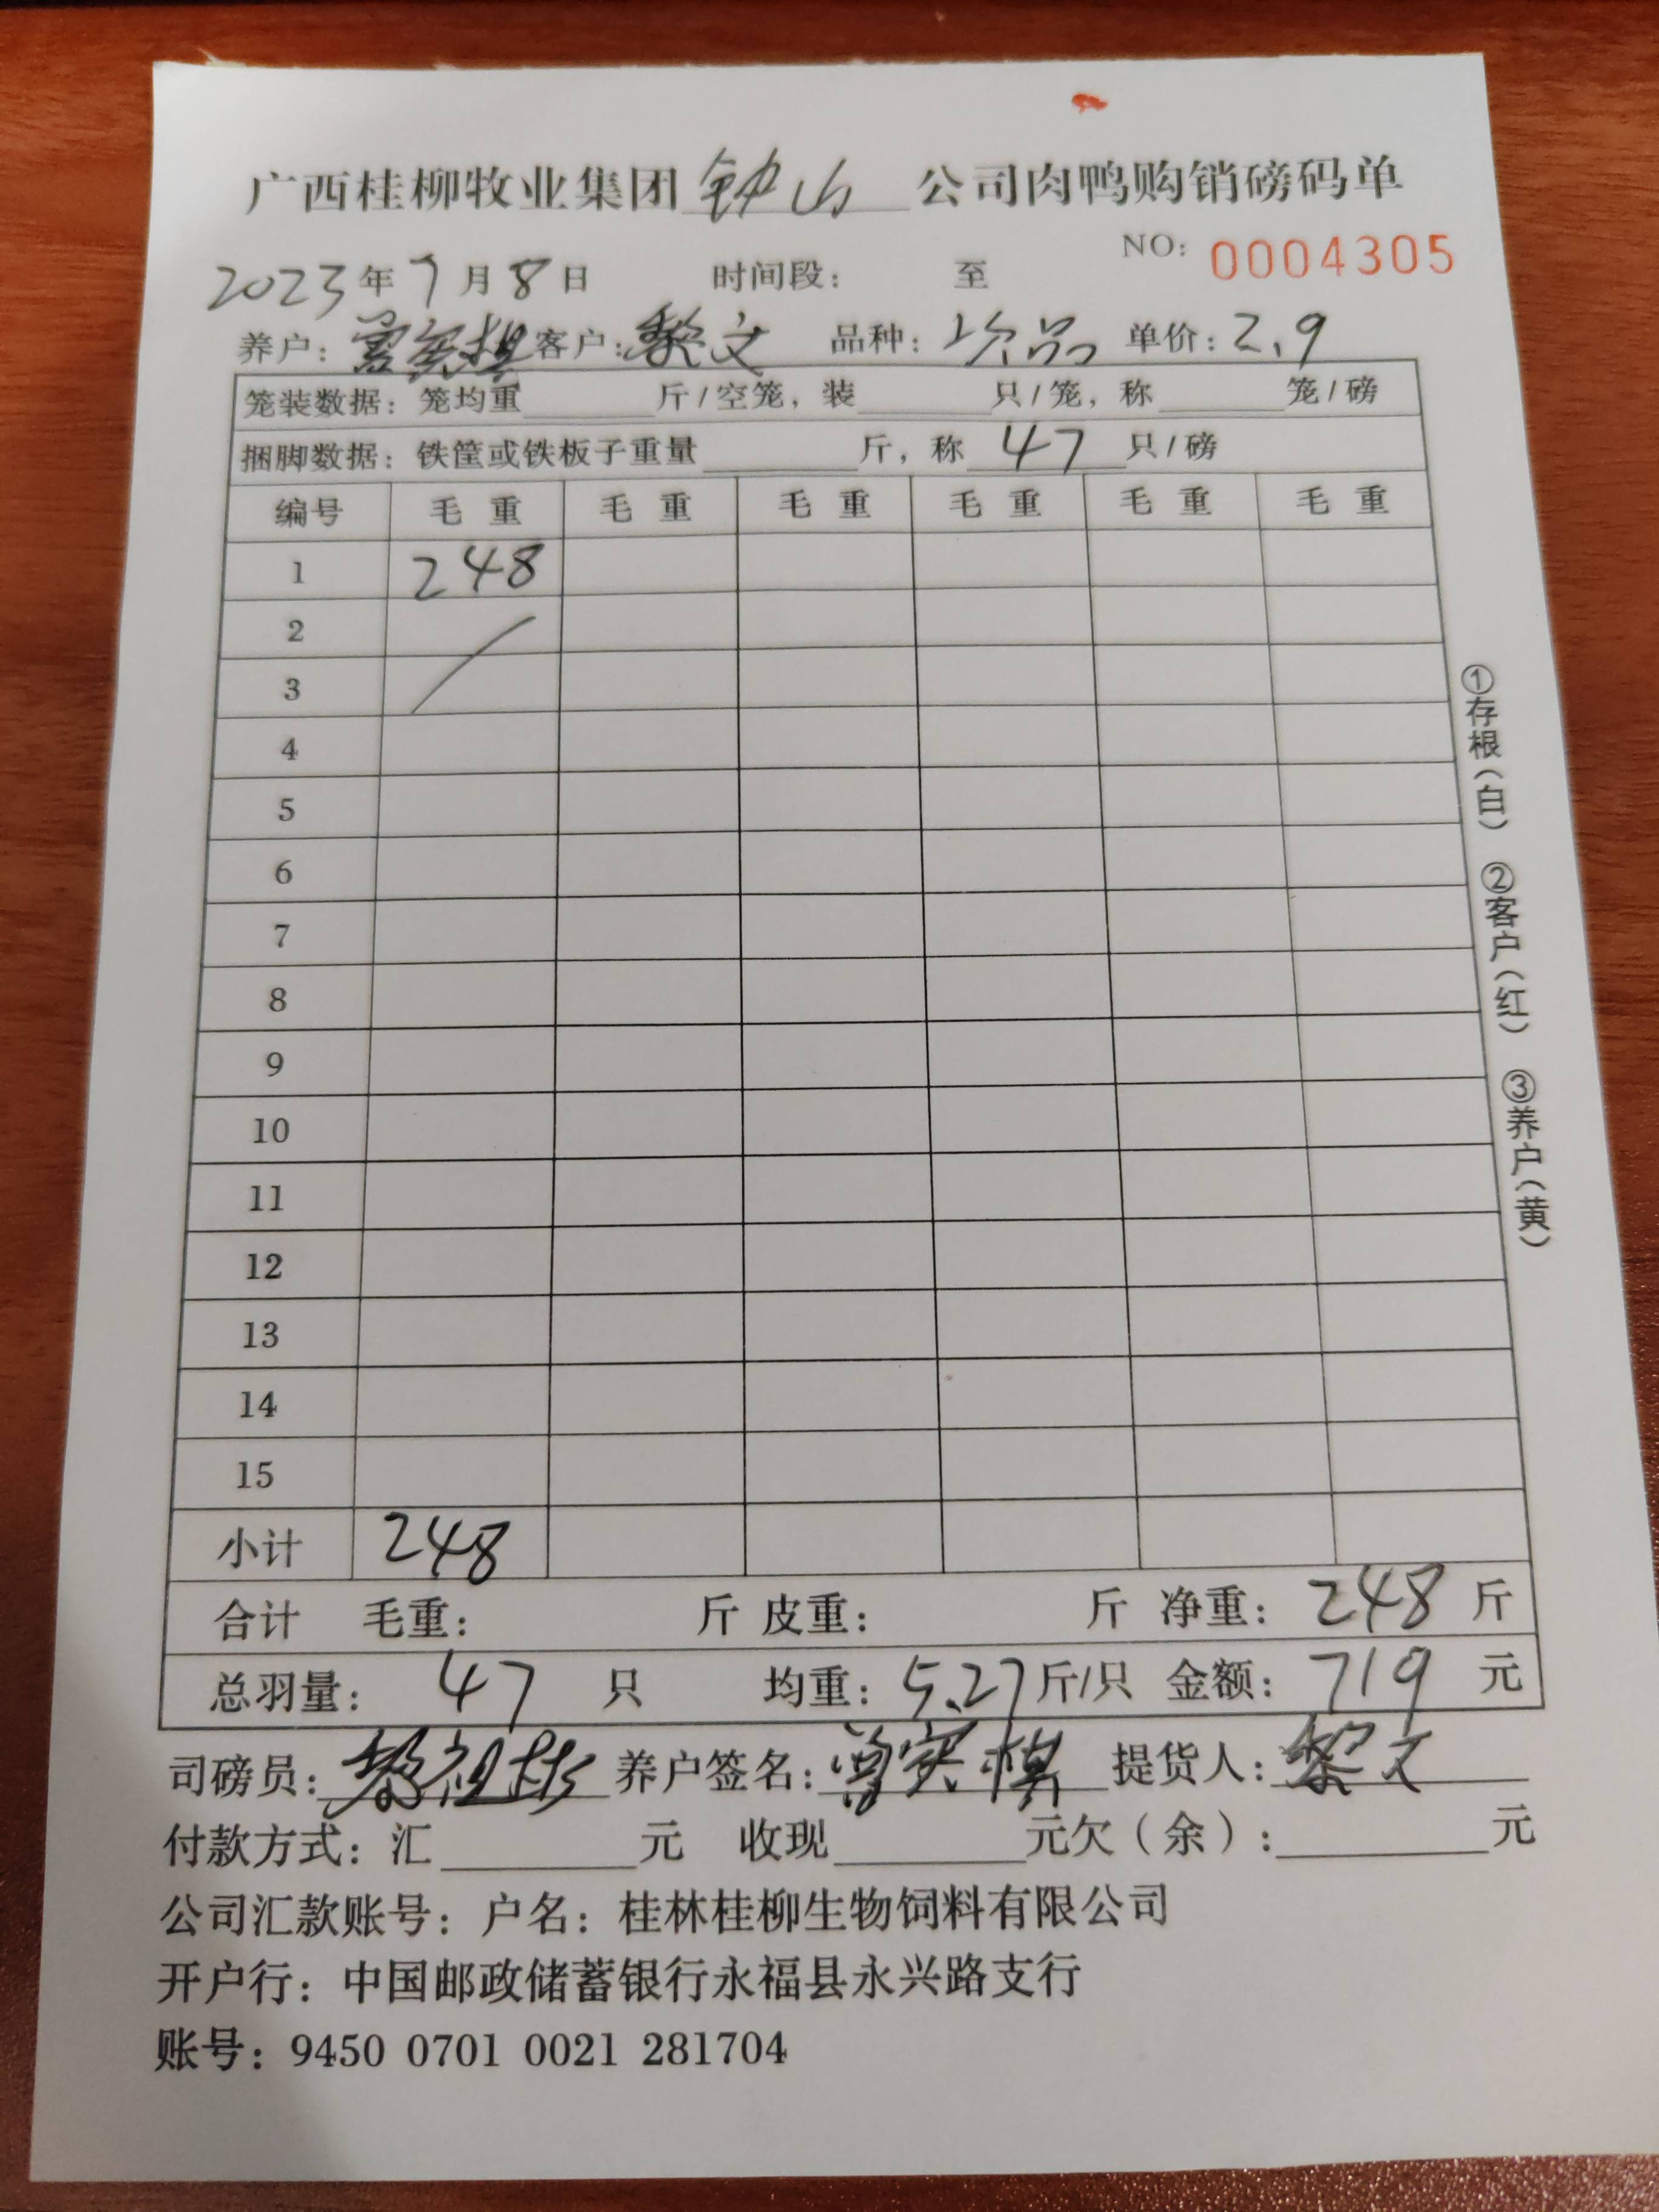 广西桂柳牧业集团钟山公司肉鸭购销磅码单
NO: 0004305
2023年7月8日 时间段: 至
养户: 客户:黎文 品种: 次品 单价:2.9
笼装数据: 笼均重 斤/空笼, 装 只/笼, 称 笼/磅
捆脚数据: 铁筐或铁板子重量 斤, 称 47 只/磅
编号 毛重 毛重 毛重 毛重 毛重 毛重
1 248
2
3
4
5
6
7
8
9
10
11
12
13
14
15
小计 248
合计 毛重: 斤 皮重: 斤 净重: 248 斤
总羽量: 47 只 均重: 5.27 斤/只 金额: 719 元
司磅员: 养户签名: 提货人: 黎文
付款方式: 汇 元 收现 元欠(余): 元
公司汇款账号: 户名: 桂林桂柳生物饲料有限公司
开户行: 中国邮政储蓄银行永福县永兴路支行
账号: 9450 0701 0021 281704
①存根(白) ②客户(红) ③养户(黄)